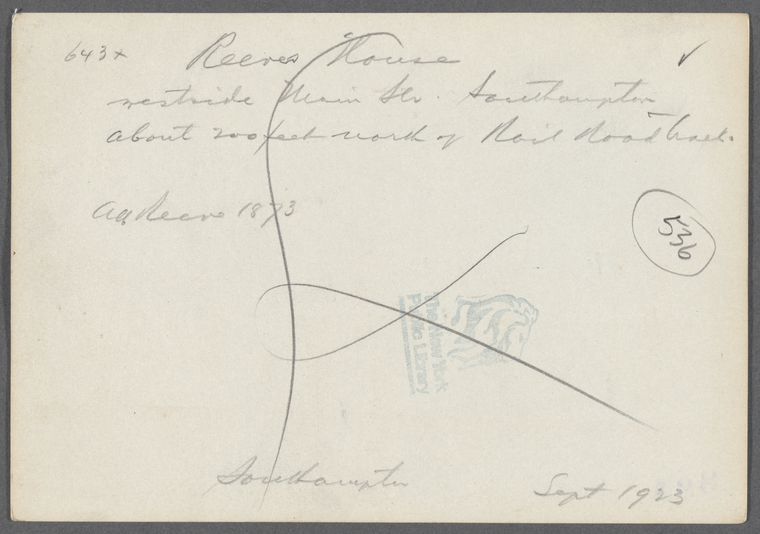 643x Reeves House ✓
westside Main Str. Southampton
about 200 feet north of Rail Road track.
Reeve 1873
536
The New York
Public Library
Southampton
Sept 1923